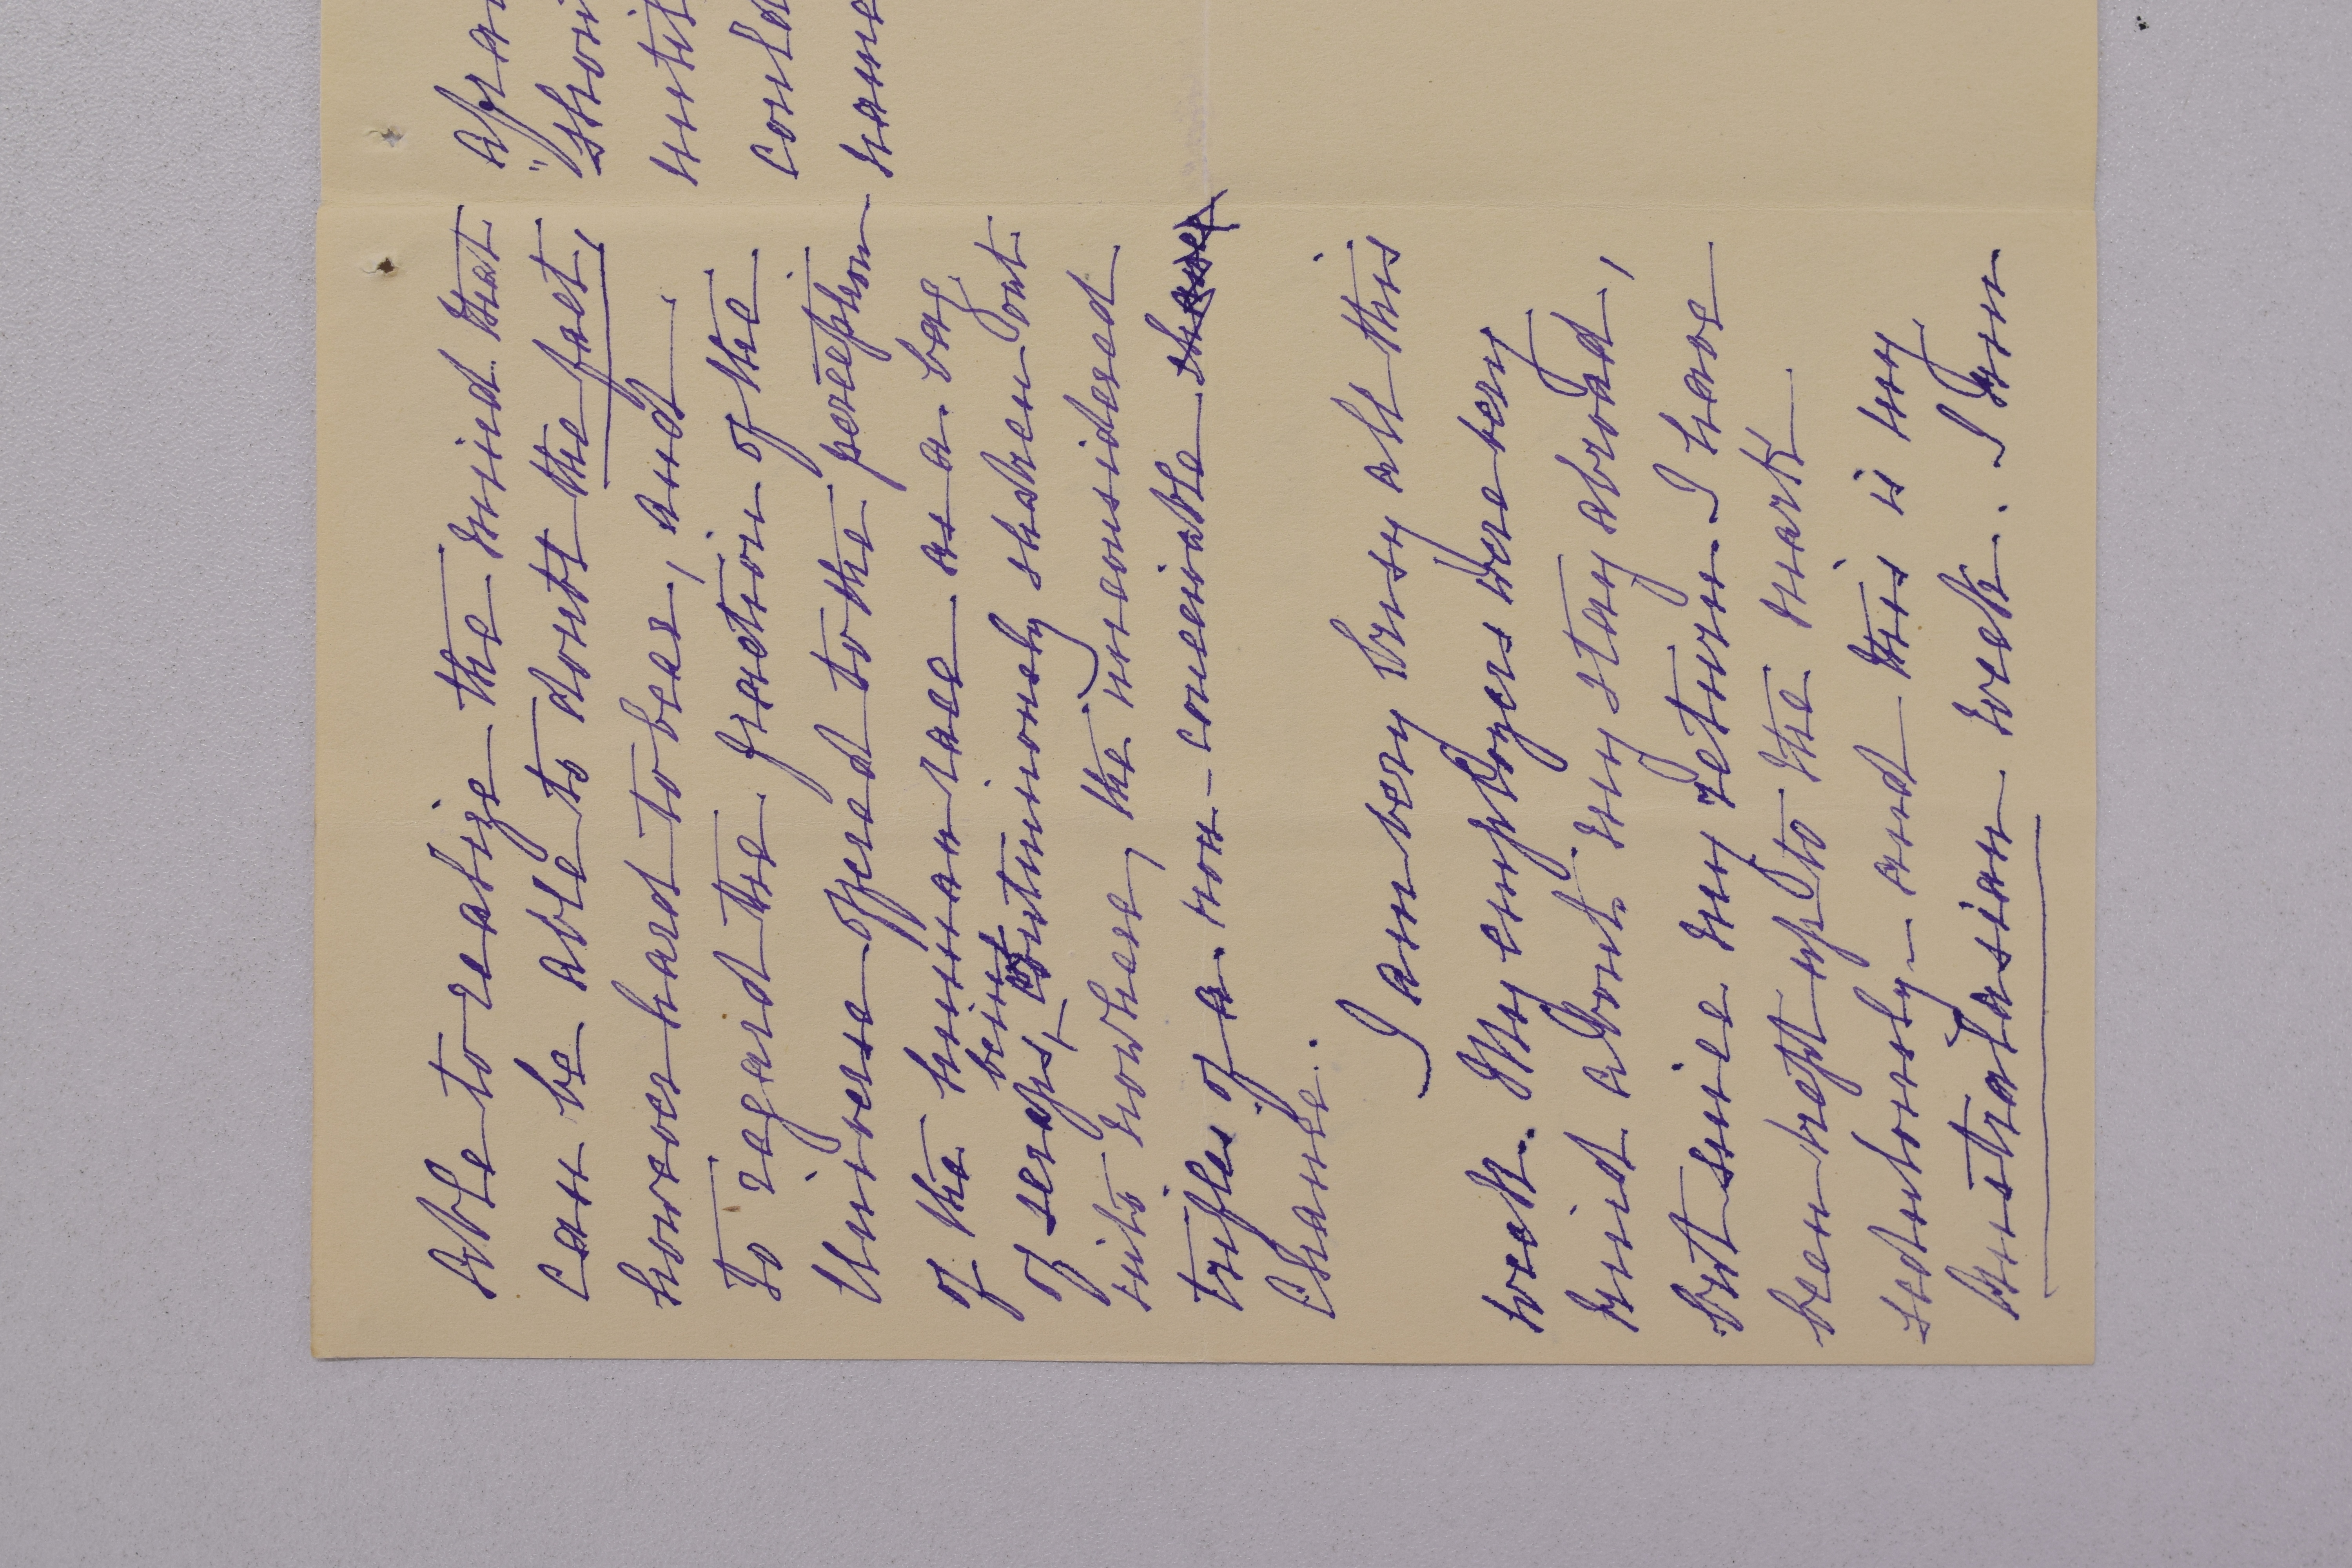 able to realize the mind that
can be able to doubt the fact,
however hard to bear, and
to regard the fraction of the
Universe offered to the perception
of the human race as a bag
of scraps, being continuously shaken out
into nowhere, the unconsidered
trifles of a non-conceivable
Chance.
I am very busy all this
week. My employers were very
kind about my stay abroad,
but since my return I have
been kept up to the mark
sedulously – and this is my
Australasian week. I am
afra
"show
until
could
name